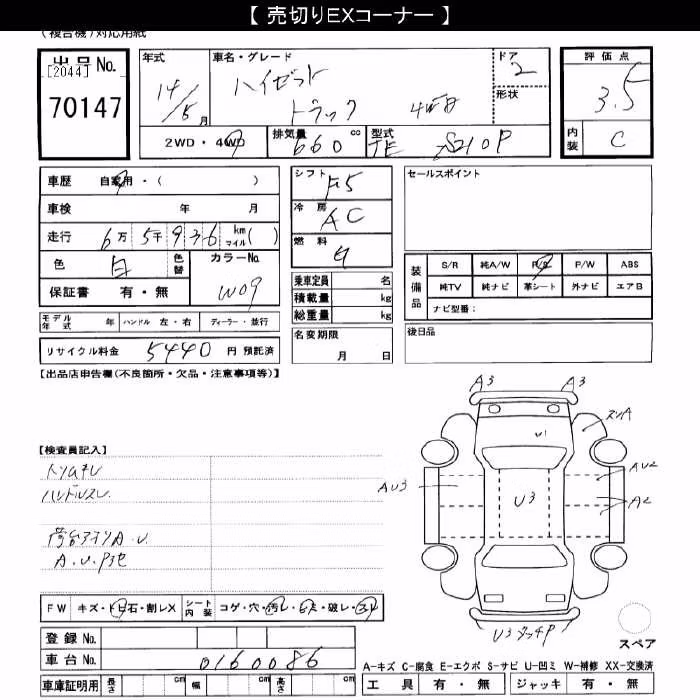 【 売切りEXコーナー 】
(複合機)対応用紙
出品 No.
[2044]
70147
年式
14/5月
車名・グレード
ハイゼット
トラック 4WD
ドア
2
形状
評価点
3.5
内装
C
2WD・4WD
排気量
660 cc
型式
S210P
車歴 自家用・( )
車検 年 月
走行 6万 5千 9 3 6 km マイル( )
色 白 色替
カラーNo.
W09
保証書 有・無
モデル年式 年 ハンドル 左・右 ディーラー・並行
リサイクル料金 5440 円 預託済
シフト
F5
冷房
AC
燃料
乗車定員 名
積載量 kg
総重量 kg
名変期限
月 日
セールスポイント
装備品
S/R 純A/W P/S P/W ABS
純TV 純ナビ 革シート 外ナビ エアB
ナビ型番:
後日品
【出品店申告欄(不良箇所・欠品・注意事項等)】
【検査員記入】
ハンドルスレ
A.U.P他
A3 A3
A
U1
AU3
U3
AU2
A2
U3 P
スペア
FW キズ・トビ石・割レX シート内装 コゲ・穴・汚レ・破レ・スレ
登録 No.
車台 No. 0160086
車庫証明用 長さ cm 幅 cm 高さ cm
A-キズ C-腐食 E-エクボ S-サビ U-凹ミ W-補修 XX-交換済
工具 有・無 ジャッキ 有・無